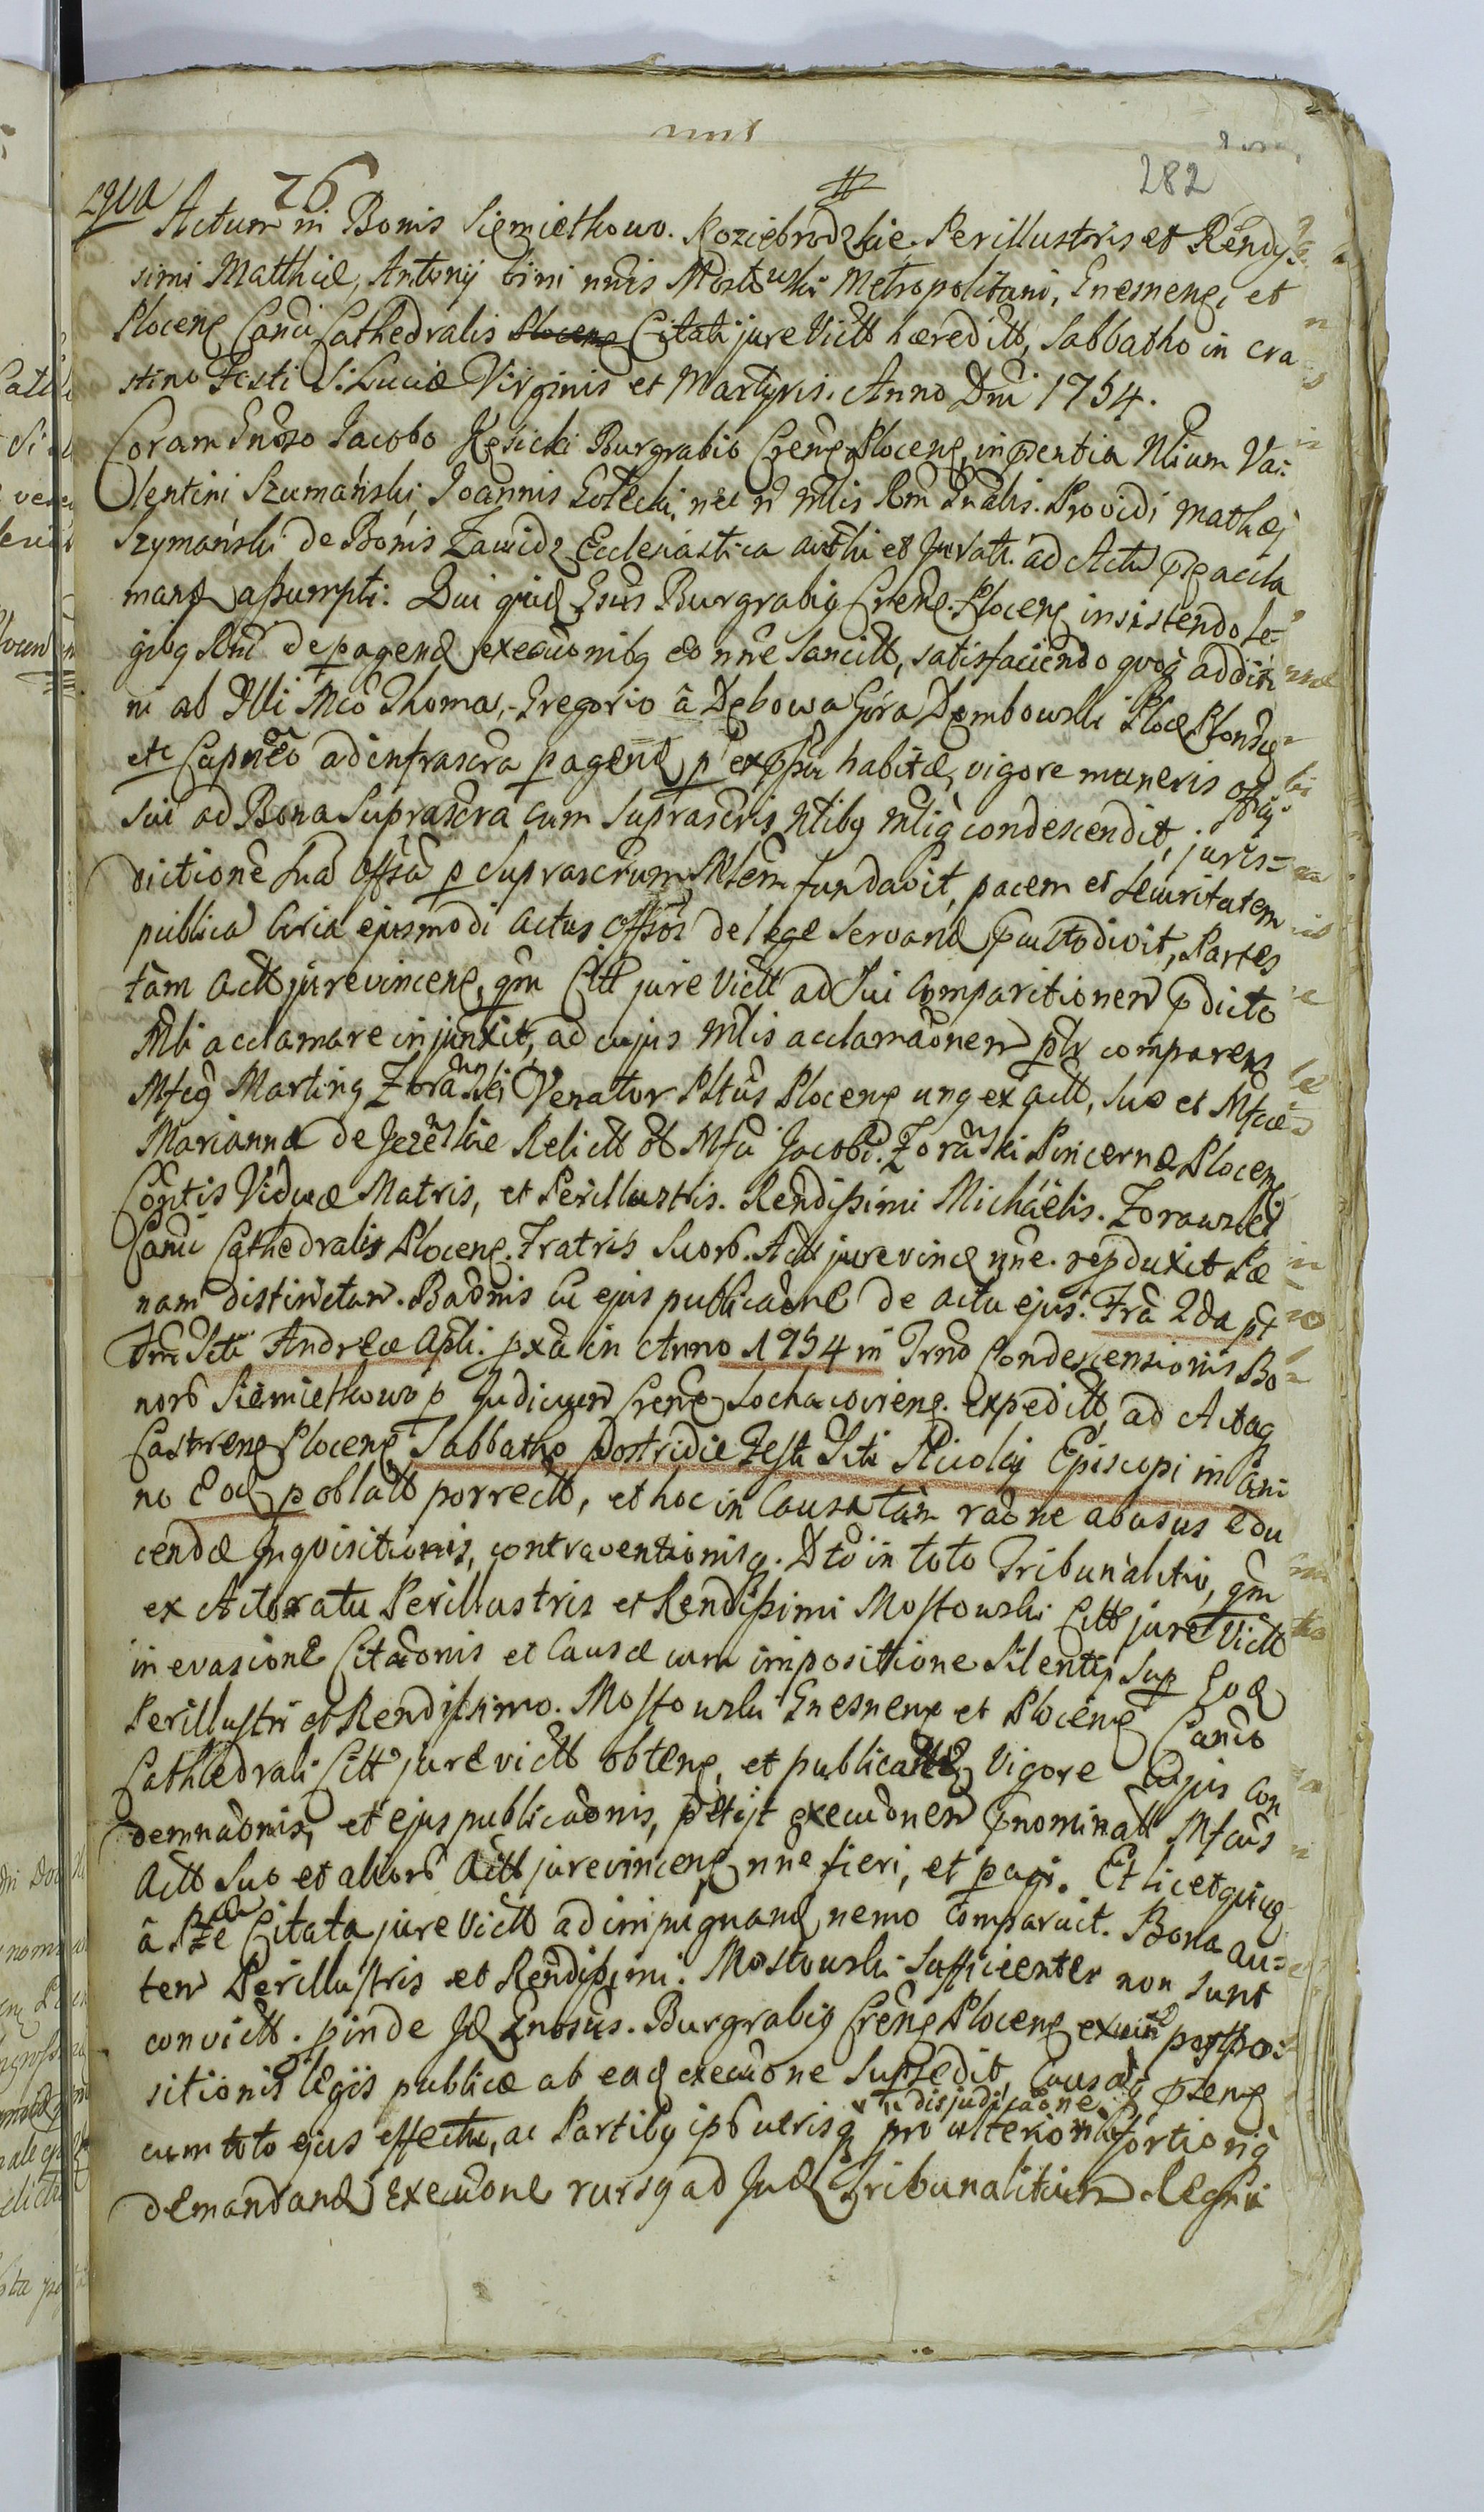 282
26
Actum in Bonis Siemiethowo. Koziebrodzkie Perillustris et Rendis
simi Matthiæ, Antonij bini nnis Mostowski Metropolitani, Gnesneng, et
Ploceng Canci Cathedralis Ploceng Citati jure Victt hæreditt, Sabbatho in cra
stino Festi S. Luciæ Virginis et Martyris. Anno Dni 1754.
Coram Gnoso Jacobo Kęsicki Burgrabio Creng Ploceng, in pentia Nlium Va=
lentini Szumański, Joannis Gołecki, nec n Mlis Rgni Gnalis. Providi Mathæi
Szymański de Bonis Zawidz Ecclesiastica authi et Jurati ad Actu
mand assumpti. Qui quid Gsus Burgrabig Creng. Ploceng insistendo le=
gibg Rni de pagend execuonibg eo nne Sancitt, satisfaciendo quoq additi
ni ab Illi Mco Thoma, Gregorio â Dębowa Góra Dembowski Ploc Plonscq
etc Capneo ad infrascra pagend habitæ, vigore muneris offij
sui ad Bona Suprascra cum Suprascris Nlibg Mliq condescendit, juris=
dictione sua offsa p suprascrum Mlem fundavit, pacem et securitatem
publica circa ejusmodi actus offsos de lege servand custodivit, Partes
tam actt jurevinceng, qm Citt jure Victt ad sui comparitionem pdicto
Mli acclamare injunxit, ad cujus Mlis acclamaonem plr comparens
Mfcg Marting Zorański Venator Pltus Ploceng ung ex actt, suo et Mfcæ
Marianna de Jezewskie Relictt ol Mfci Jacobi Zorański Pincernæ Ploceng
Contis Viduæ Matris, et Perillustris. Rendissimi Michaëlis. Zorawski
Canci Cathedralis Ploceng. Fratris suorb. Actt jurevince nne. reproduxit Pæ
nam distinctam. Badnis cu ejus publicaone de actu ejus. Fra 2da pt
Fm Scti Andreæ Apli. pxa in Anno 1754 in Trno Condescensionis Bo
norb Siemiethowo p Judicium Creng Sochacovieng. expeditt, ad Actaq
Castreng Ploceng Sabbatho postridie Festi Scti Nicolai Episcopi in An
no Eod p oblatt porrectt, et hoc in Causa tàm raone abusus edu
cendæ Inquisitionis, contraventionisq. Dto in toto Tribunalitio, qm
ex Actoratu Perillustris et Rendissimi Mostowski Citt jure Victt
in evasione Citaonis et Causæ cum impositione Silentij Sup Eod
Perillustri et Rendissimo. Mostowski Gnesneng et Ploceng Canco
Cathedrali Citt jure victt obteng, et publicatt Vigore Cujus con
demnaonis, et ejus publicaonis, petijt execuonem pnominatt Mfcus
Actt suo et aliorb Actt jurevinceng nne fieri, et pagi. Et licet quiug
â Pte Citata jure Victt ad impugnand nemo comparuit. Bona au=
tem Perillustris et Rendissimi. Mostowski Sufficienter non sunt
convictt. pinde Id Gnosus. Burgrabig Creng Ploceng postpo=
sitionis legis publicæ ab ead execuone Supsedit, Causaq pseng
disjudicaone
cum toto ejus effectu, ac Partibg ipsb utrisq pro ulteriori fortioriq
demandand execuone rursg ad Jud Tribunalitium Regni